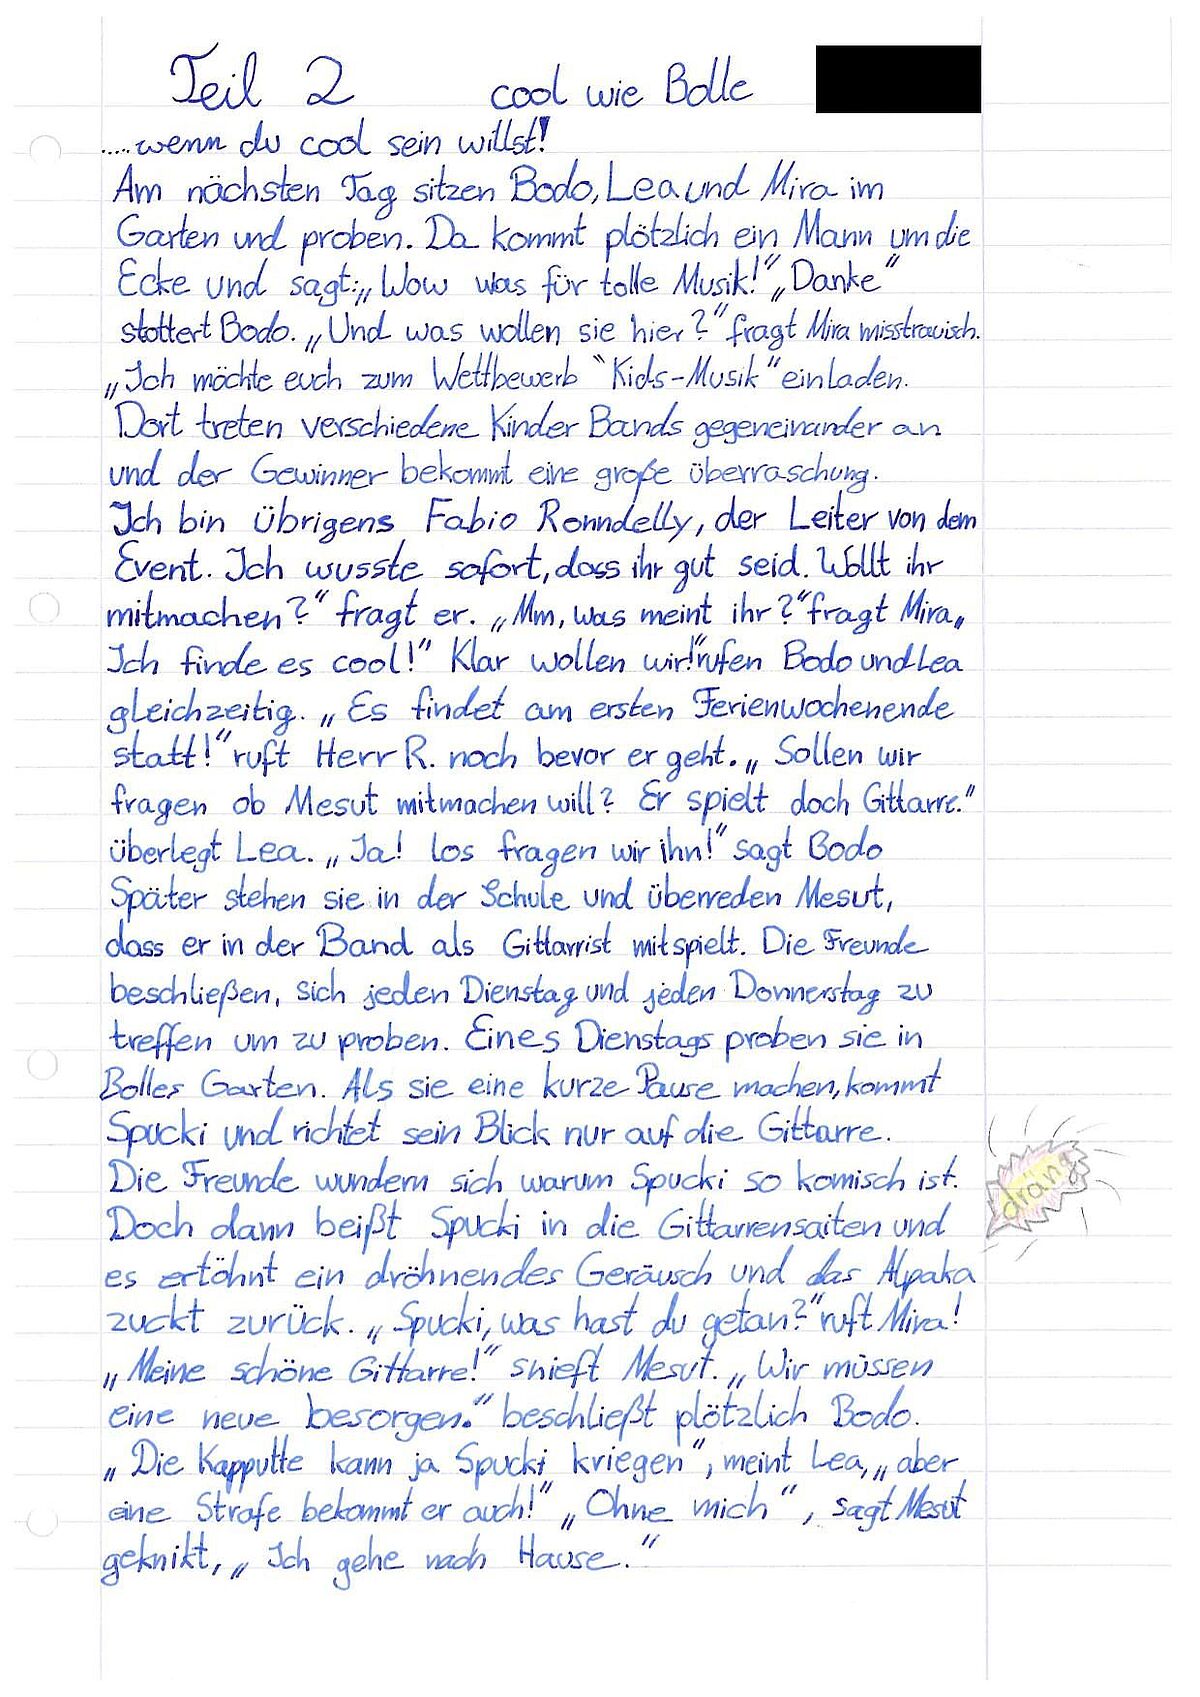 Teil 2 cool wie Bolle
.... wenn du cool sein willst!
Am nächsten Tag sitzen Bodo, Lea und Mira im
Garten und proben. Da kommt plötzlich ein Mann um die
Ecke und sagt: „Wow was für tolle Musik!" „Danke"
stottert Bodo. „Und was wollen sie hier?" fragt Mira misstrauisch.
„Ich möchte euch zum Wettbewerb "Kids-Musik" einladen.
Dort treten verschiedene Kinder Bands gegeneinander an
und der Gewinner bekommt eine große überraschung.
Ich bin übrigens Fabio Ronndelly, der Leiter von dem
Event. Ich wusste sofort, dass ihr gut seid. Wollt ihr
mitmachen?" fragt er. „Mm, was meint ihr?" fragt Mira „
Ich finde es cool!" Klar wollen wir!" rufen Bodo und Lea
gleichzeitig. „Es findet am ersten Ferienwochenende
statt!" ruft Herr R. noch bevor er geht. „Sollen wir
fragen ob Mesut mitmachen will? Er spielt doch Gittarre."
überlegt Lea. „Ja! los fragen wir ihn!" sagt Bodo
Später stehen sie in der Schule und überreden Mesut,
dass er in der Band als Gittarrist mitspielt. Die Freunde
beschließen, sich jeden Dienstag und jeden Donnerstag zu
treffen um zu proben. Eines Dienstags proben sie in
Bolles Garten. Als sie eine kurze Pause machen, kommt
Spucki und richtet sein Blick nur auf die Gittarre.
Die Freunde wundern sich warum Spucki so komisch ist.
Doch dann beißt Spucki in die Gittarrensaiten und
es ertöhnt ein dröhnendes Geräusch und das Alpaka
zuckt zurück. „Spucki, was hast du getan?" ruft Mira!
„Meine schöne Gittarre!" snieft Mesut. „Wir müssen
eine neue besorgen." beschließt plötzlich Bodo.
„Die Kapputte kann ja Spucki kriegen", meint Lea, „aber
eine Strafe bekommt er auch!" „Ohne mich", sagt Mesut
geknikt, „Ich gehe nach Hause."
dräng